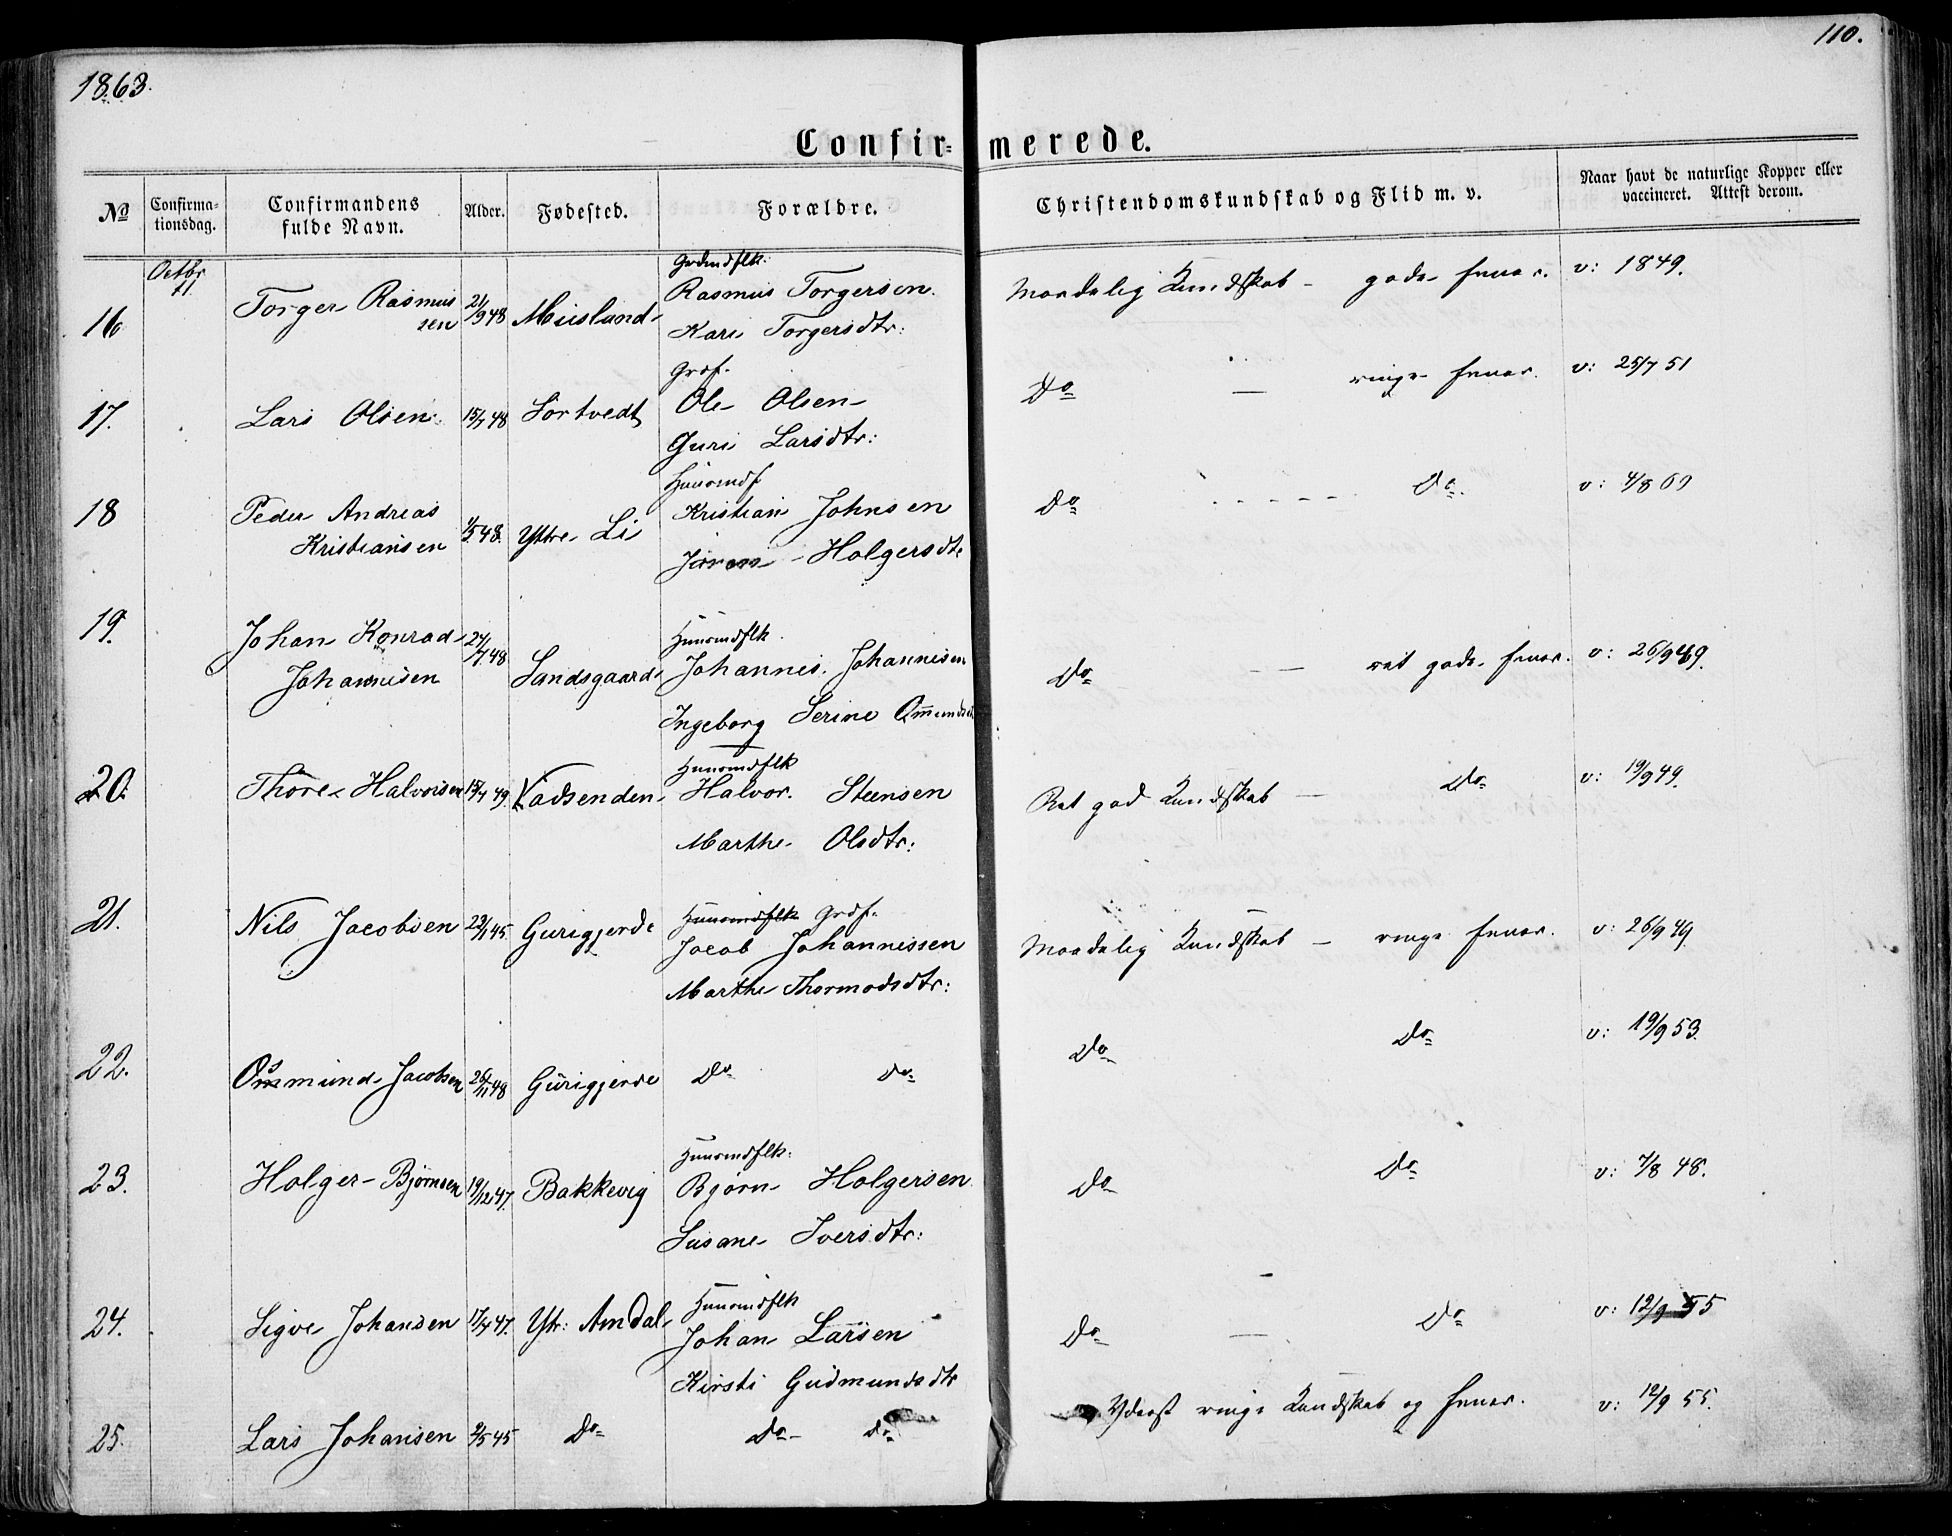 1863.
110.
Confirmerede.
No
Confirmationsdag.
Confirmandens fulde Navn.
Alder.
Fødested.
Forældre.
Christendomskundskab og Flid m. v.
Naar havt de naturlige Kopper eller vaccineret. Attest derom.
Octbr
11
16 Torger Rasmussen 21/9 48 Miisland Grdmdflk: Rasmus Torgersen. Kari Torgersdtr: Maadelig Kundskab – gode Evner. v: 1849.
17. Lars Olsen 15/7 48 Sortvedt Grdf. Ole Olsen Guri Larsdtr: Do – ringe Evner. v: 25/7 51
18 Peder Andreas Kristiansen 4/5 48. Yttre Li Huusmdf Kristian Johnsen Holgersdtr Do Do v: 4/8 60
19. Johan Konrad Johannisen 24/7 48 Sandsgaard Huusmdflk Johannis Johannisen Ingeborg Serine Omunds Do – ret gode Evner. v: 26/9 49.
20. Thore Halvorsen 15/4 49. Vadsenden Huusmdflk Halvor Steensen Marthe Olsdtr: Ret god Kundskab – Do v: 19/9 49.
21. Nils Jacobsen 23/1 45. Gurigjerde Huusmdflk Grdf. Jacob Johannissen Marthe Thormodsdtr: Maadelig Kundskab – ringe Evner. v: 26/9 49.
22. Osmund Jacobsen 26/11 48 Gurigjerde Do Do Do Do v: 19/9 53.
23. Holger Bjørnsen 19/12 47. Bakkevig Huusmdflk: Bjørn Holgersen Susane Iversdtr: Do Do v: 7/8 48.
24. Sigve Johansen 17/7 47. Ytr: Amdal Huusmdflk Johan Larsen Kirsti Gudmundsdtr Do – Do v: 12/9 55
25. Lars Johansen 2/5 45 Do Do Do Yderst ringe Kundskab og Evner. v: 12/9 55.